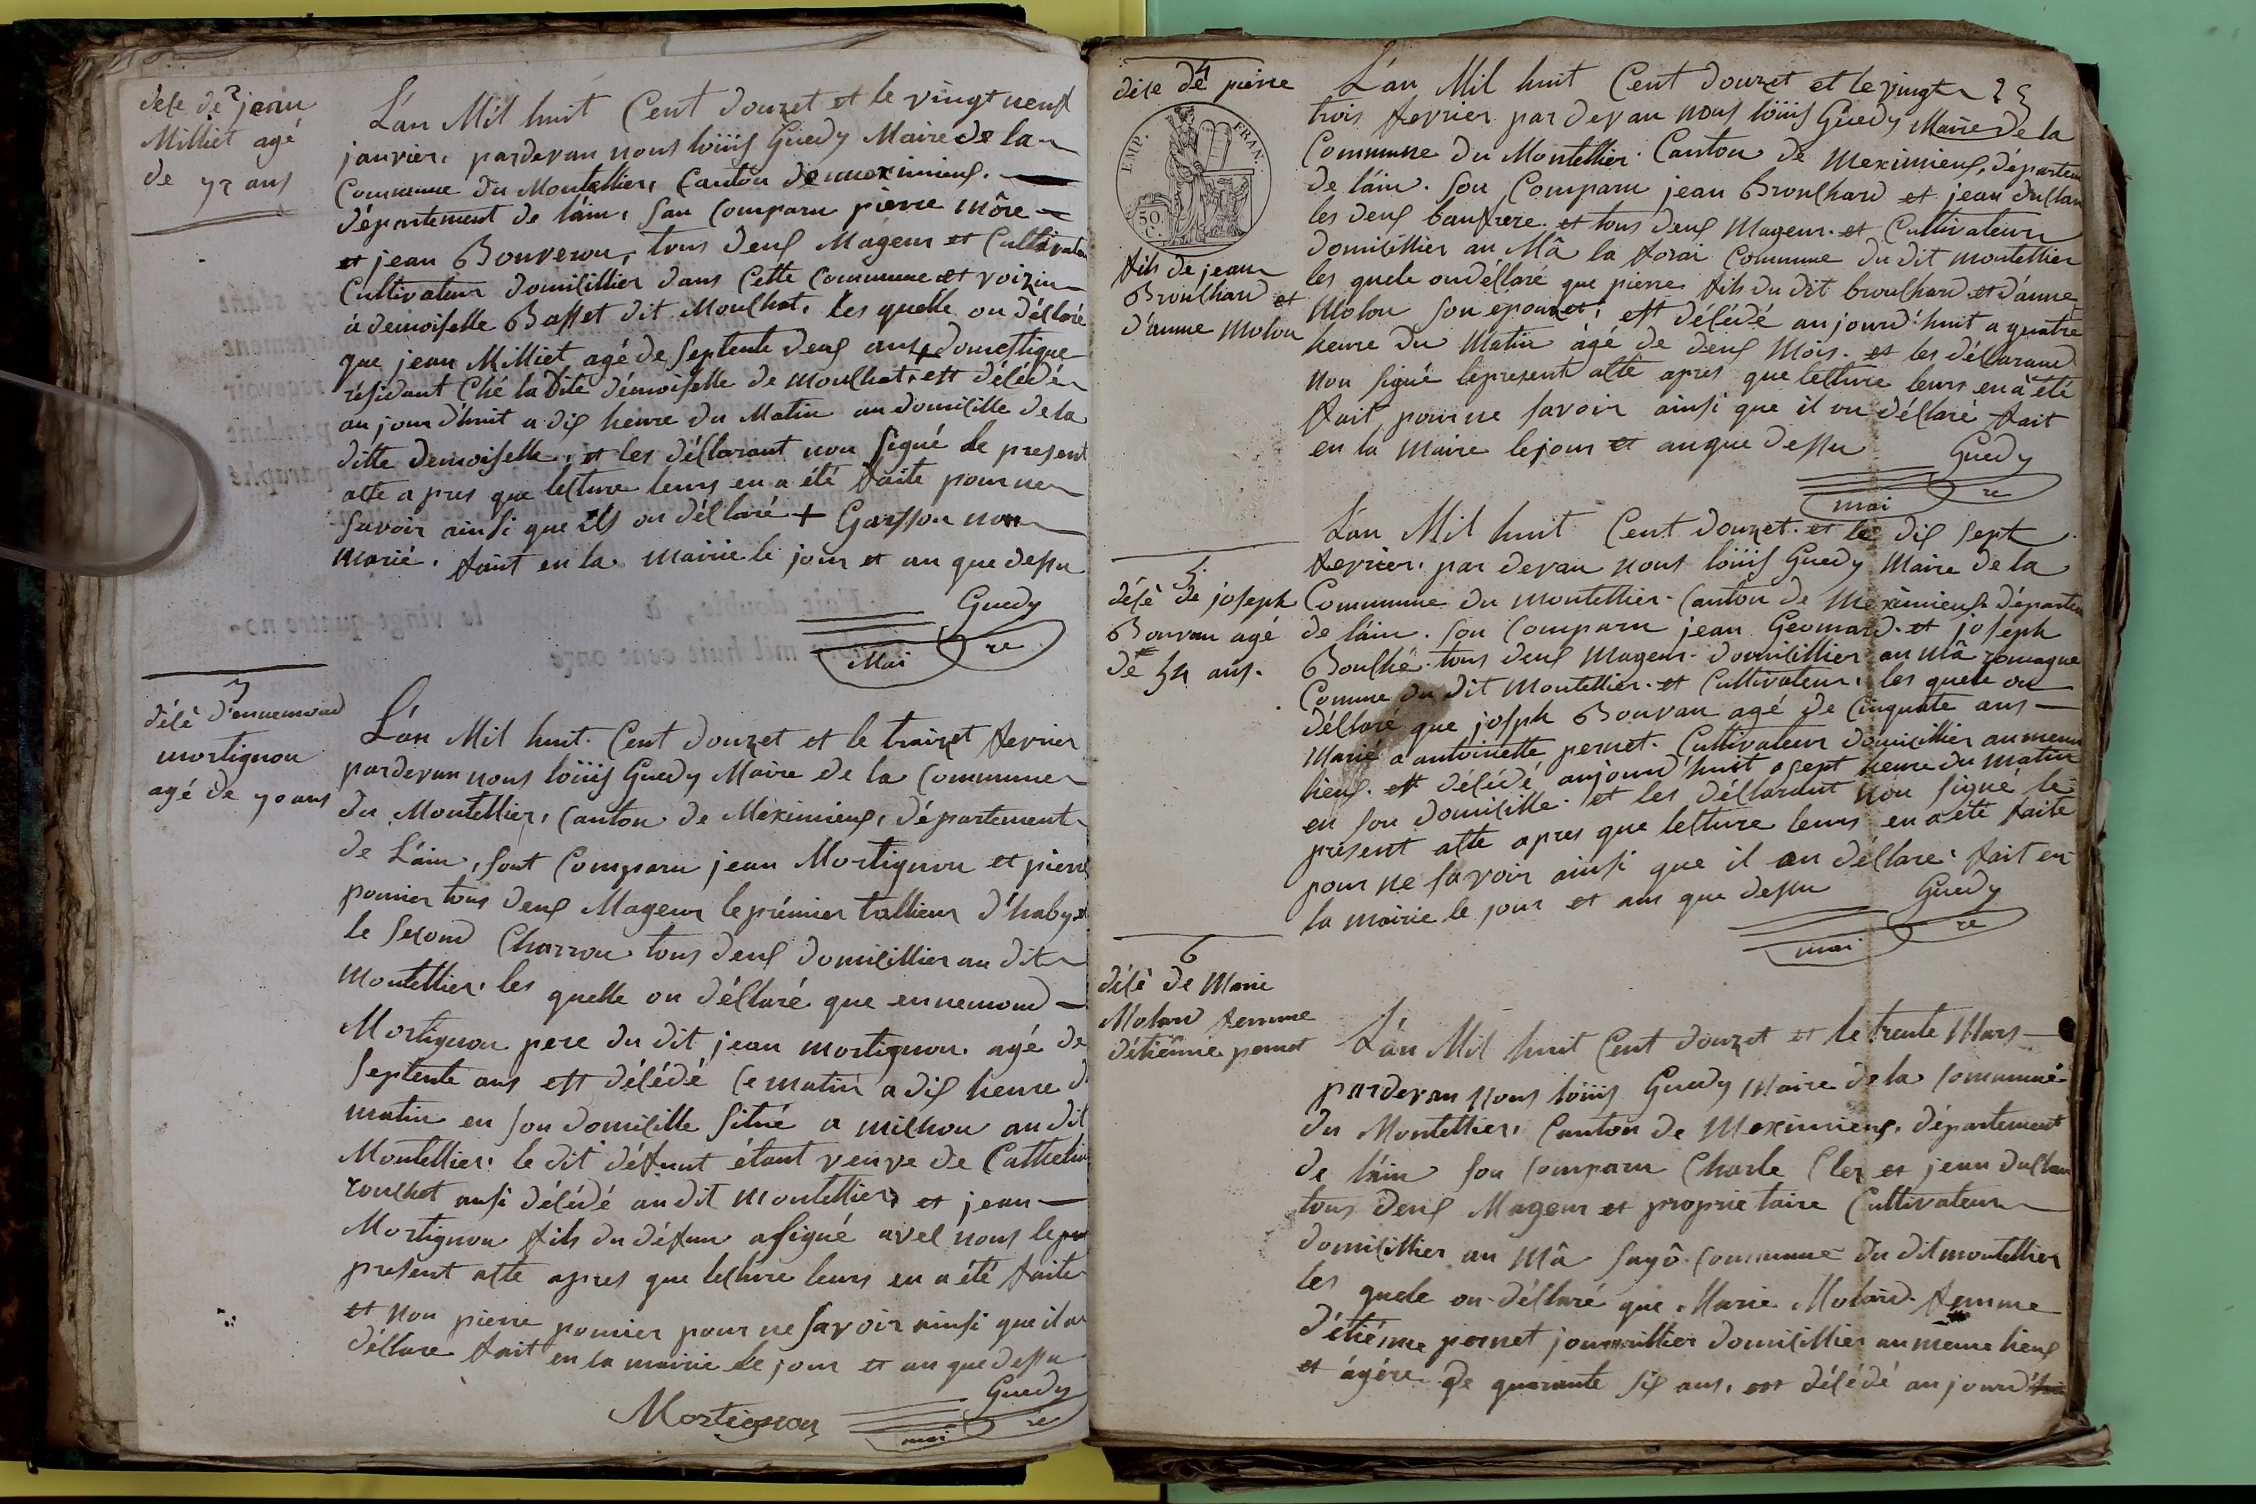 dese de 2 jean
Milliet agé
de 72 ans
L'an Mil huit Cent douzet et le vingt neuf
janvier, pardevan nous loüis Guedy Maire de la
Commune du Montellier, Canton de meximieuf.
département de l'ain, son Comparu pierre môre
et jean Bouveron, tous deuf Mageur et Cultivateur
Cultivateur domicillier dans Cette Commune et voizin
à demoiselle Basset dit Moulhot, les quelle on décloré
que jean Milliet agé de septente deuf ans + domestique
résidant Ché la dite démoiselle de moulhot, est décédé
au jourdhuit a dif heure du Matin au domicille de la
ditte demoiselle, et les déclarant non signé le present
atte apres que lecture leurs en a été faite pour ne
savoir ainsi que ils on déclaré + Garsson non
marié. fait en la mairie le jour et an que dessu
Guedy
Mai re
3
décè d'ennemond
mortignon
agé de 70 ans
L'an Mil huit Cent douzet et le traizet fevrier
pardevan nous loüis Guedy Maire de la Commune
du Montellier, Canton de Meximieuf, département
de L'ain, sont Comparu jean Mortignon et pierre
pomier tous deuf Mageur le prémier tallieur d'haby et
le second Charron tous deuf domicillier au dit
montellier, les quelle on déclaré que ennemond
Mortignon pere du dit jean mortignon, agé de
septente ans est décédé Ce matin a dif heure d
matin en son domicille situé a milhon au dit
Montellier, le dit défunt étant veuve de Catheli
rouchot ausi décédé au dit montellier, et jean
Mortignon fils du défun a signé avec nous le
present atte apres que lecture leurs en a été faite
et non pierre pomier pour ne savoir ainsi que il on
déclare fait en la mairie le jour et an que dessu
Guedy
Mortignon
mai re
4
dese de pierre
EMP. FRAN.
50 C.
fils de jean
Broulhard et
d'anne Molon
25
L'an Mil huit Cent douzet et le vingt
trois fevrier par devan nous loüis Guedy Maire de la
Commune du Montellier Canton de meximieuf, départem
de l'ain. son Comparu jean Broulhard et jean duclau
les deuf baufrere et tous deuf Mageur et Cultivateur
domicillier au Mâ la forai Commune du dit montellier
les quele on déclaré que pierre fils du dit broulhard et d'anne
Molon son epouzet, est décédé au jourd'huit a quatre
heure du Matin âgé de deuf Mois. et les déclarand
non signé le present atte apres que lecture leurs en à été
fait pour ne savoir ainsi que il on déclaré fait
en la Maire le jour et an que dessu
Guedy
mai re
5
décè de joseph
Bouvan agé
de 54 ans.
L'an Mil huit Cent douzet et le dif sept
fevrier, par devan nous loüis Guedy Maire de la
Commune du montellier Canton de Meximieuf départem
de l'ain. son Comparu jean Geomard et joseph
Boulhé tous deuf Mageur domicillier au mâ romagne
Comme du dit Montellier et Cultivateur, les quele on
déclaré que josph Bouvan agé de Cinquate ans
Marié a antoinette pernet. Cultivateur domicillier au meme
lieuf. est décédé aujourd'huit a sept heure du matin
en son domicille et les déclarant non signé le
présent atte apres que lecture leurs en a été faite
pour ne savoir ainsi que il on déclare fait en
la mairie le jour et ans que dessu
Guedy
mai re
6
décè de Marie
Molard femme
d'étiénne pernet
L'an Mil huit Cent douzet et le trente Mars
pardevan Nous loüis Guedy Maire de la Commune
du Montellier, Canton de Meximieuf. département
de l'ain son Comparu Charle Cler et jean duclau
tous deuf Mageur et proprietaire Cultivateur
domicillier au Mâ sayô Commune du dit montellier
les quele on déclaré que Marie Molard femme
d'étiénne pernet journallier domicillier au meme lieuf
et ágére de quarante sif ans, est décédé au jourd'hui